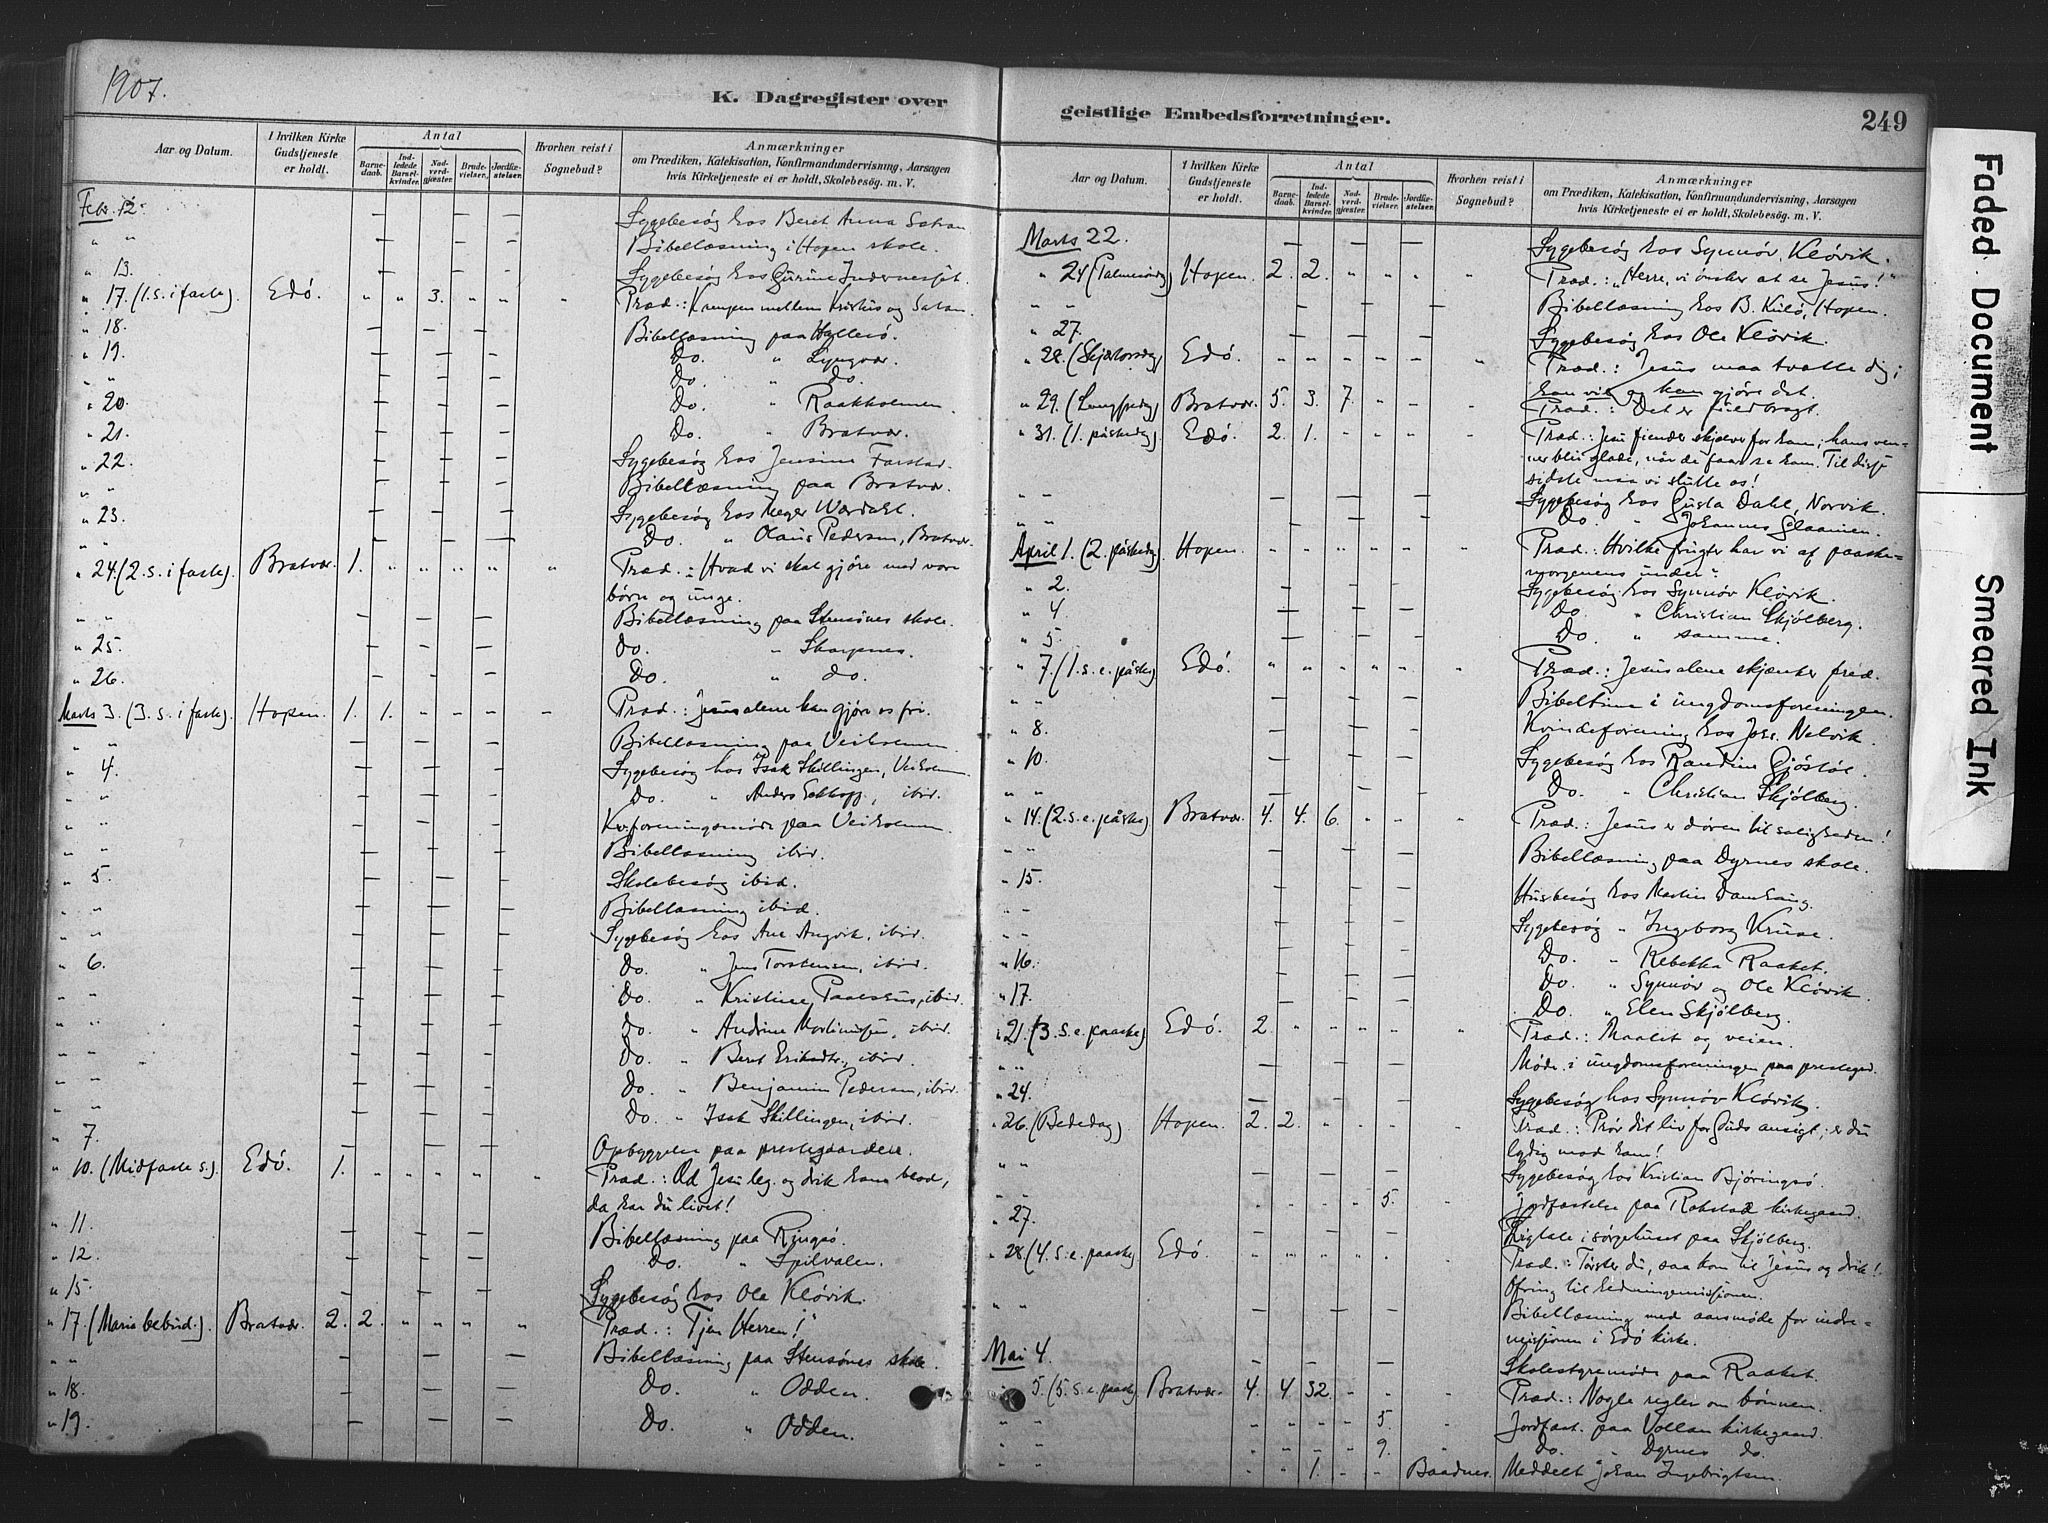 1907.
K. Dagregister over
Aar og Datum. I hvilken Kirke Gudstjeneste er holdt. Antal Barne-daab. Ind-ledede Barsel-kvinder. Nad-verd-gjæster. Brude-vielser. Jordfæ-stelser. Hvorhen reist i Sognebud? Anmærkninger om Prædiken, Katekisation, Konfirmandundervisning, Aarsagen hvis Kirketjeneste ei er holdt, Skolebesøg. m. V.
Febr. 12. — — — Sygebesøg hos Beret Anna
" " — — — Bibellæsning i Hopen skole.
" 13. — — — Sygebesøg hos
" 17. (1. s. i faste). Edö. " " 3. " " " Præd.: Krampen mellem Kristus og Satan.
" 18. — — — Bibellæsning paa
" 19. — — — Do. " Lyngvær.
" " — — — Do. " do.
" 20. — — — Do. " Raakholmen.
" 21. — — — Do. " Bratvær.
" 22. — — — Sygebesøg hos Jensine Farstad.
" " — — — Bibellæsning paa Bratvær.
" 23. — — — Sygebesøg hos
" " — — — Do. " Olaus Pedersen, Bratvær.
" 24. (2. s. i faste). Bratvær. 1. " " " " " Præd.: Hvad vi skal gjöre med vore
börn og unge.
" " — — — Bibellæsning paa Stensönes skole.
" 25. — — — Do. " Skarpnes.
" 26. — — — Do. " do.
Marts 3. (3. s. i faste). Hopen. 1. 1. " " " " Præd.: Jesus alene kan gjöre os fri.
" " — — — Bibellæsning paa Veiholmen.
" 4. — — — Sygebesøg hos Isak Skillingen, Veiholmen.
" " — — — Do. " Anders ibid.
" " — — — Kv.foreningsmöde paa Veiholmen.
" " — — — Bibellæsning ibid.
" 5. — — — Skolebesøg ibid.
" " — — — Bibellæsning ibid.
" " — — — Sygebesøg hos Ane Angvik, ibid.
" 6. — — — Do. " Jens Torstensen, ibid.
" " — — — Do. " Kristine ibid.
" " — — — Do. " Andrine ibid.
" " — — — Do. " Beret Eriksdtr., ibid.
" " — — — Do. " Benjamin Pedersen, ibid.
" " — — — Do. " Isak Skillingen, ibid.
" 7. — — — Opbyggelse paa prestegaarden.
" 10. (Midfaste s.). Edö. 1. " " " " " Præd.: Æd Jesu leg. og drik hans blod,
da har du livet!
" 11. — — — Bibellæsning paa Ringsö.
" 12. — — — Do. "
" 15. — — — Sygebesøg hos Ole Klövik.
" 17. (Maria bebud.). Bratvær. 2. 2. " " " " Præd.: "Tjen Herren!"
" " — — — Bibellæsning paa Stensönes skole.
" 18. — — — Do. " Odden.
" 19. — — — Do. " Odden.
geistlige Embedsforretninger. 249
Aar og Datum. I hvilken Kirke Gudstjeneste er holdt. Antal Barne-daab. Ind-ledede Barsel-kvinder. Nad-verd-gjæster. Brude-vielser. Jordfæ-stelser. Hvorhen reist i Sognebud? Anmærkninger om Prædiken, Katekisation, Konfirmandundervisning, Aarsagen hvis Kirketjeneste ei er holdt, Skolebesög. m. V.
Marts 22. — — — Sygebesøg hos Synnöv Klövik.
" 24 (Palmesöndag) Hopen. 2. 2. " " " " Præd.: "Herre, vi önsker at se Jesus!"
" " — — — Bibellæsning hos B. Kulö, Hopen.
" 27. — — — Sygebesøg hos Ole Klövik.
" 28. (Skjærtorsdag) Edö. " " " " " " Præd.: Jesus maa tvætte dig;
han vil og kan gjöre det.
" 29. (Langfredag) Bratvær. 5. 3. 7. " " " Præd.: Det er fuldbragt.
" 31. (1. påskedag). Edö. 2. 1. " " " " Præd.: Jesu fiender skjælver for ham; hans ven-
ner blir glade, når de faar se ham. Til disse
sidste maa vi slutte os!
" " — — — Sygebesøg hos Gusta Dahl, Norvik.
" " — — — Do. " Johannes
April 1. (2. påskedag) Hopen. " " " " " " Præd.: Hvilke frugter har vi af paaske-
morgenens under?
" 2. — — — Sygebesøg hos Synnöv Klövik.
" 4. — — — Do. " Christian Skjölberg.
" 5. — — — Do. " samme.
" 7. (1. s. e. påske) Edö. " " " " " " Præd.: Jesus alene skjænker fred.
" " — — — Bibeltime i ungdomsforeningen.
" 8. — — — Kvindeforening hos Johs. Nelvik.
" 10. — — — Sygebesøg hos Randine
" " — — — Do. " Christian Skjölberg.
" 14. (2. s. e. påske) Bratvær. 4. 4. 6. " " " Præd.: Jesus er dören til saligheden!
" " — — — Bibellæsning paa Dyrnes skole.
" 15. — — — Husbesøg hos Martin
" " — — — Sygebesøg " Ingeborg Kruse.
" 16. — — — Do. " Rebekka Raaket.
" 17. — — — Do. " Synnöv og Ole Klövik.
— — — Do. " Elen Skjölberg.
" 21. (3. s. e. paaske) Edö. 2. " " " " " Præd.: Maalet og veien.
" " — — — Möde i ungdomsforeningen paa prestegrd.
" 24. — — — Sygebesøg hos Synnöv Klövik.
" 26. (Bededag) Hopen. 2. 2. " " " " Præd.: Pröv dit liv for Guds ansigt; er du
lydig mod ham!
" " — — — Sygebesøg hos Kristian Björingsö.
" " " " " " 5. " Jordfæstelse paa Rokstad kirkegaard.
" 27. — — — Ligtale i sörgehuset paa Skjölberg.
" 28. (4. s. e. paaske) Edö. " " " " " " Præd.: Törster du, saa kom til Jesus og drik!
Ofring til hedningemissionen.
" " — — — Bibellæsning med aarsmöde for indre-
missionen i Edö kirke.
Mai 4. — — — Skolestyremöde paa Raaket.
" 5. (5. s. e. paaske) Bratvær. 4. 4. 32. " " " Præd.: Nogle regler om bönnen.
" " " " " " 5. " Jordfæst. paa Vollan kirkegaard.
" " " " " " 9. " Do. " Dyrnes do.
" " " " 1. " " Baadnes. Meddelt Johan Ingebrigtsen.
Faded Document Smeared Ink